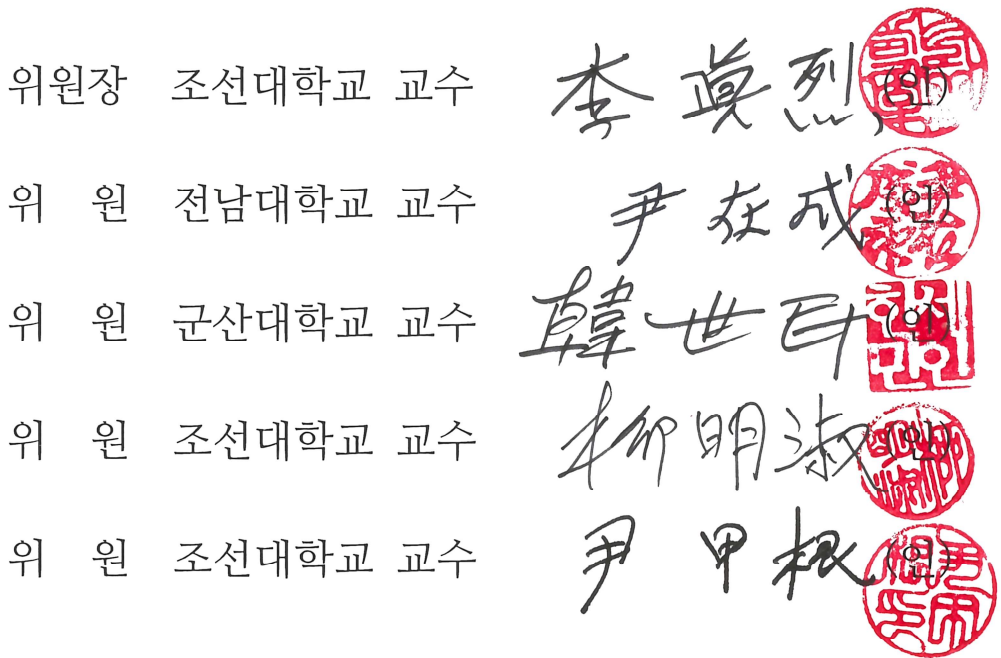 위원장 조선대학교 교수 李 眞 烈 (인)
위 원 전남대학교 교수 尹 在 成 (인)
위 원 군산대학교 교수 韓 世 民 (인)
위 원 조선대학교 교수 柳 明 淑 (인)
위 원 조선대학교 교수 尹 甲 根 (인)